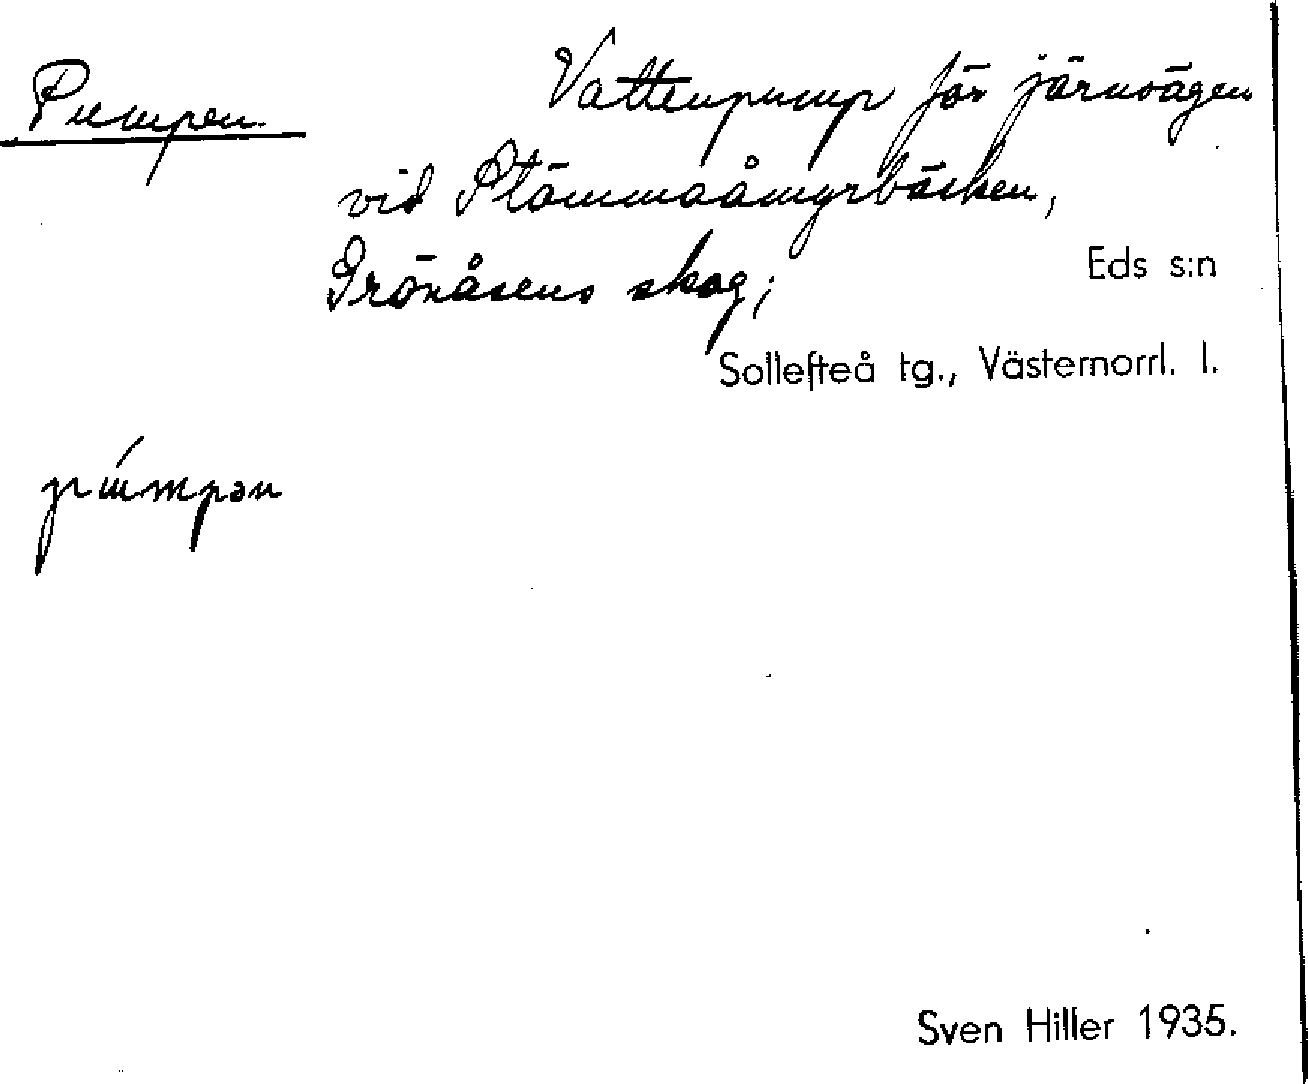 Pumpen.
Vattenpump för järnvägen
vid Stämmaåmyrbäcken,
Grönåsens skog;
Eds s:n
Sollefteå tg., Västernorrl. l.
púmpən
Sven Hiller 1935.